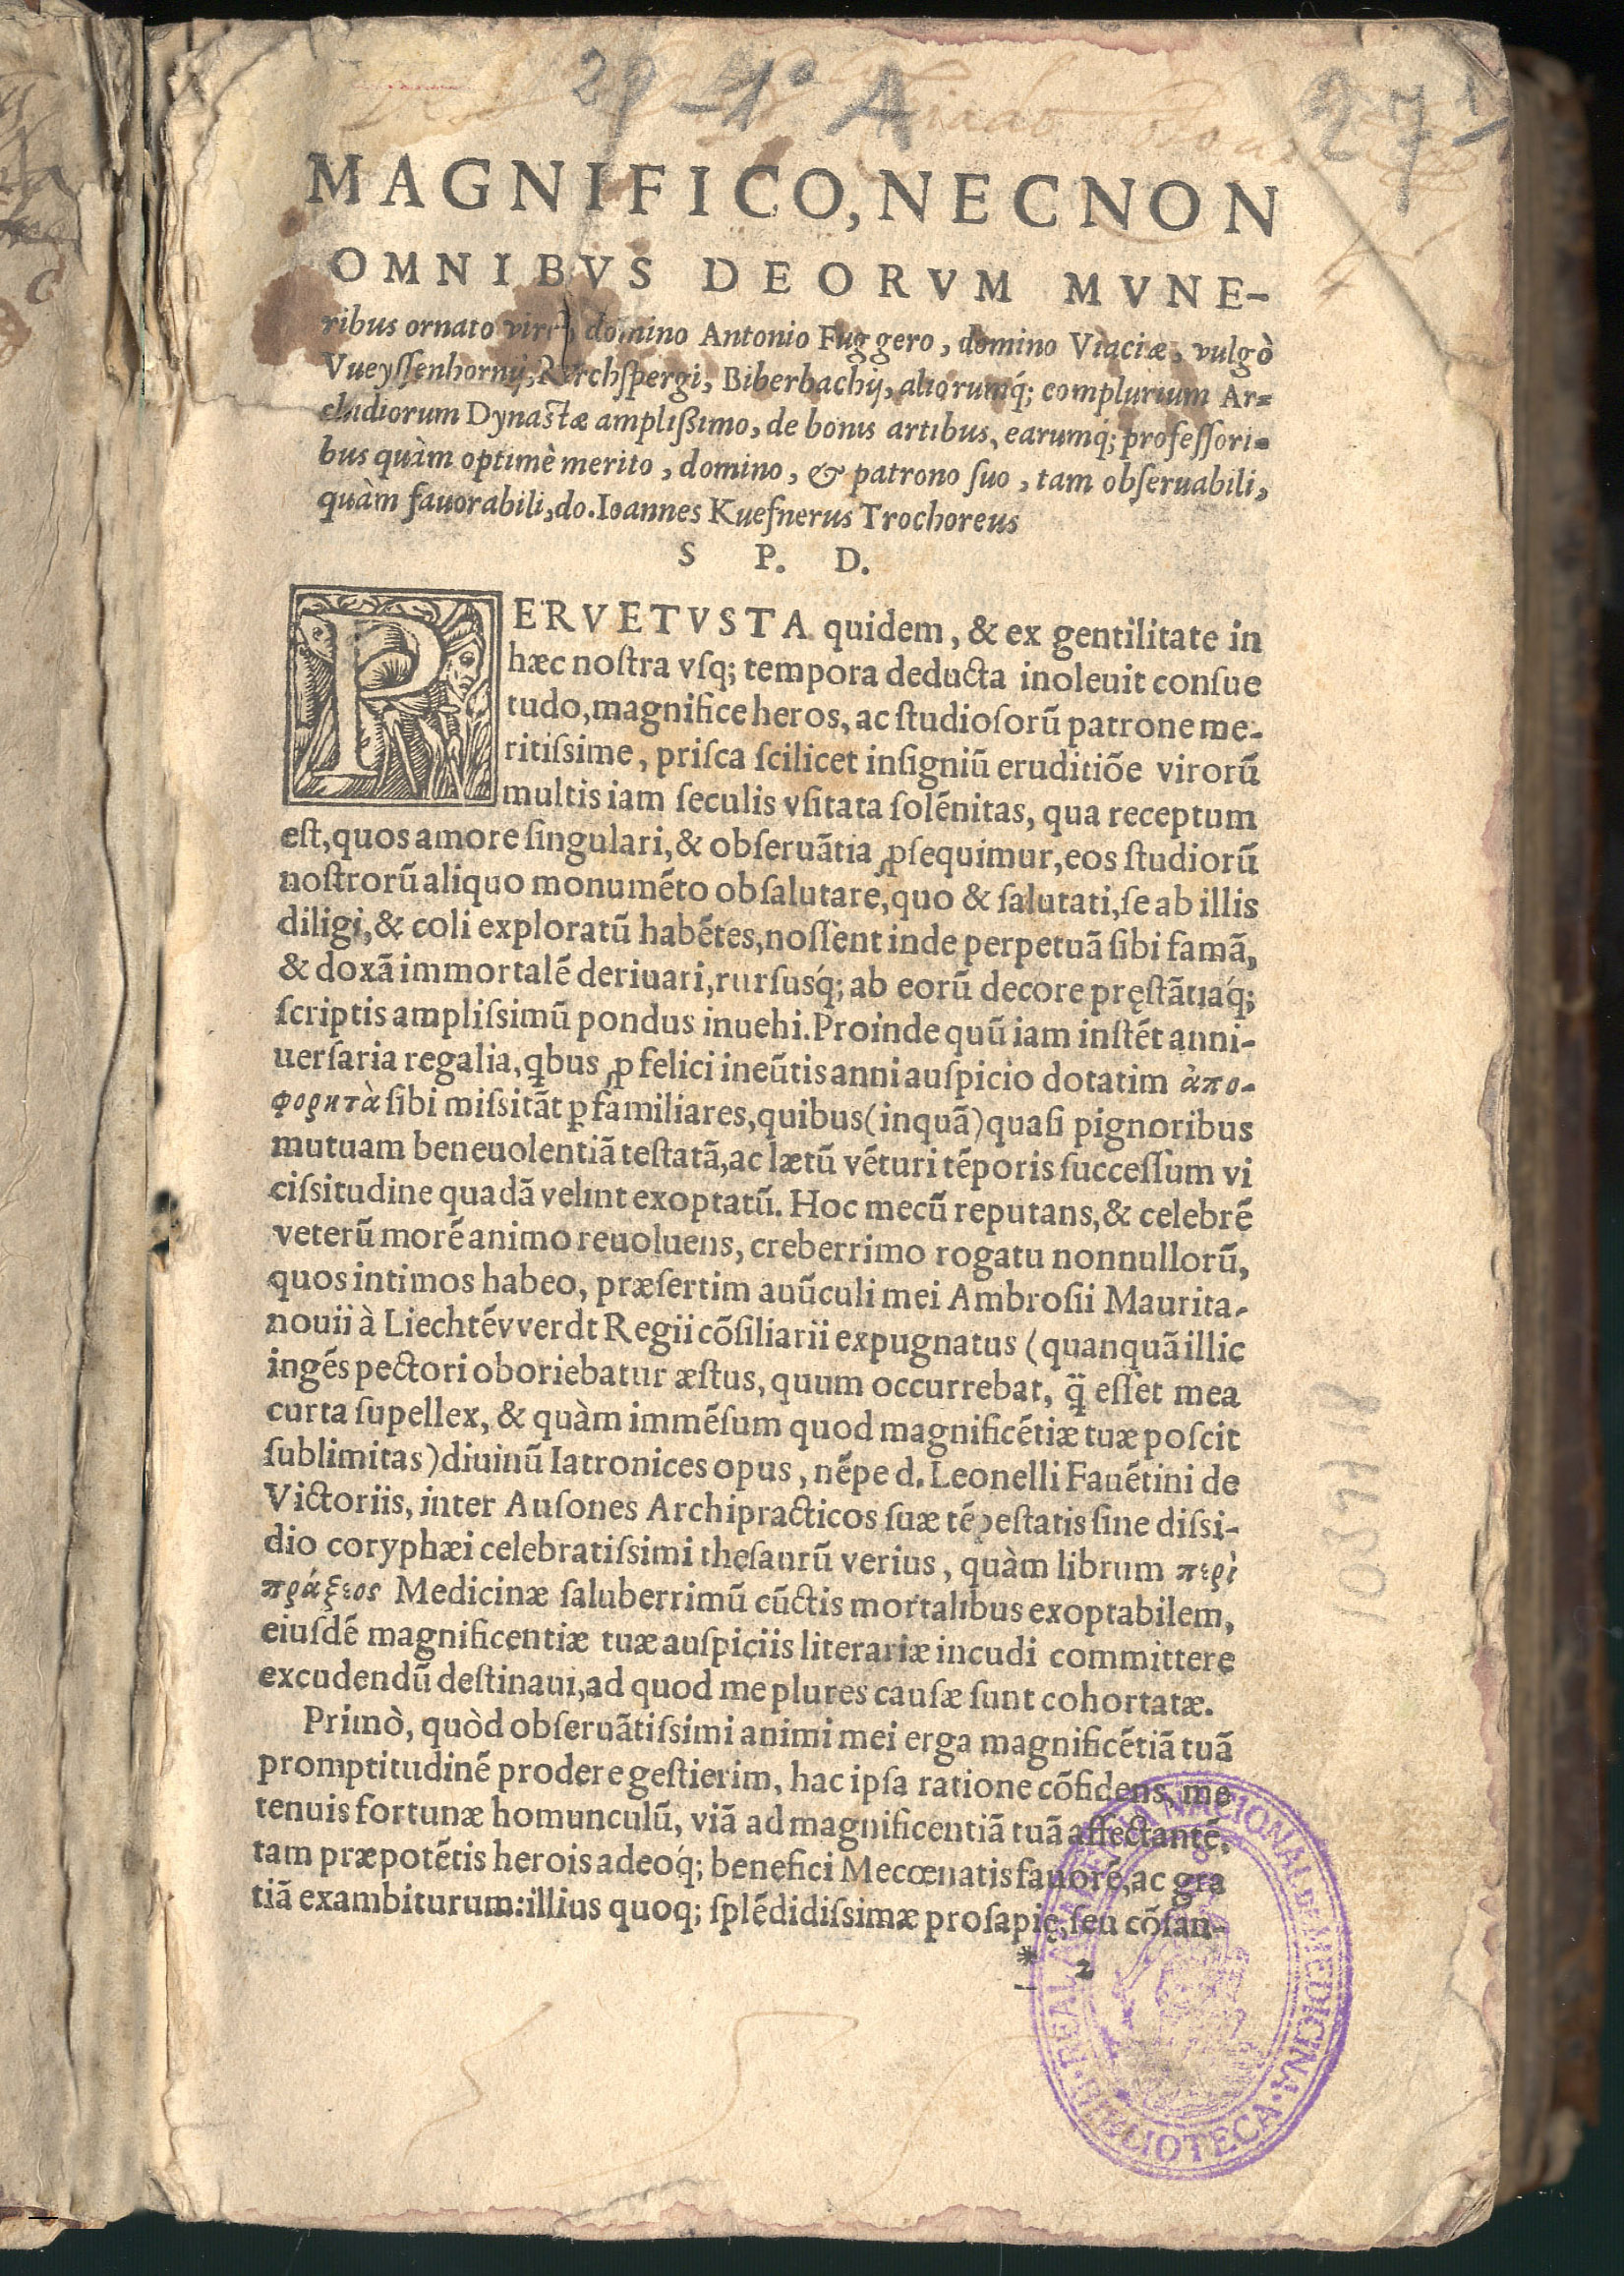 29 - 1º A
27
MAGNIFICO, NECNON
OMNIBVS DEORVM MVNE-
ribus ornato viro, domino Antonio Fuggero, domino Viaciæ, vulgò
Vueyſſenhornij, Kirchſpergi, Biberbachij, aliorumq́; complurium Ar=
cludiorum Dynastæ amplißimo, de bonis artibus, earumq́; profeſſori=
bus quàm optimè merito, domino, & patrono ſuo, tam obſeruabili,
quàm fauorabili, do. Ioannes Kuefnerus Trochoreus
S P. D.
PERVETVSTA quidem, & ex gentilitate in
hæc noſtra vſq; tempora deducta inoleuit conſue
tudo, magnifice heros, ac ſtudioſorū patrone me-
ritiſsime, priſca ſcilicet inſigniū eruditiōe virorū
multis iam ſeculis vſitata ſolēnitas, qua receptum
eſt, quos amore ſingulari, & obſeruãtia ꝓſequimur, eos ſtudiorū
noſtrorū aliquo monumēto obſalutare, quo & ſalutati, ſe ab illis
diligi, & coli exploratū habētes, noſſent inde perpetuã ſibi famã,
& doxã immortalē deriuari, rurſusq́; ab eorū decore pręſtãtiaq́;
ſcriptis ampliſsimū pondus inuehi. Proinde quū iam inſtēt anni-
uerſaria regalia, q̃bus ꝓ felici ineūtis anni auſpicio dotatim ἀπο-
φορητὰ ſibi miſsitãt ꝑ familiares, quibus (inquã) quaſi pignoribus
mutuam beneuolentiã teſtatã, ac lætū vēturi tēporis ſucceſſum vi
ciſsitudine quadã velint exoptatū. Hoc mecū reputans, & celebrē
veterū morē animo reuoluens, creberrimo rogatu nonnullorū,
quos intimos habeo, præſertim auūculi mei Ambroſii Maurita-
nouii à Liechtēvverdt Regii cōſiliarii expugnatus (quanquã illic
ingēs pectori oboriebatur æſtus, quum occurrebat, q̃ eſſet mea
curta ſupellex, & quàm immēſum quod magnificētiæ tuæ poſcit
ſublimitas) diuinū Iatronices opus, nēpe d. Leonelli Fauētini de
Victoriis, inter Auſones Archipracticos ſuæ tēpeſtatis ſine diſsi-
dio coryphæi celebratiſsimi theſaurū verius, quàm librum περὶ
πράξεος Medicinæ ſaluberrimū cūctis mortalibus exoptabilem,
eiuſdē magnificentiæ tuæ auſpiciis literariæ incudi committere
excudendū deſtinaui, ad quod me plures cauſæ ſunt cohortatæ.
Primò, quòd obſeruãtiſsimi animi mei erga magnificētiã tuã
promptitudinē prodere geſtierim, hac ipſa ratione cōfidens, me
tenuis fortunæ homunculū, viã ad magnificentiã tuã affectantē,
tam præpotētis herois adeoq́; benefici Mecœnatis fauorē, ac gra
tiã exambiturum: illius quoq; ſplēdidiſsimæ proſapię, ſeu cōſan-
* 2
REAL ACADEMIA NACIONAL DE MEDICINA · BIBLIOTECA ·